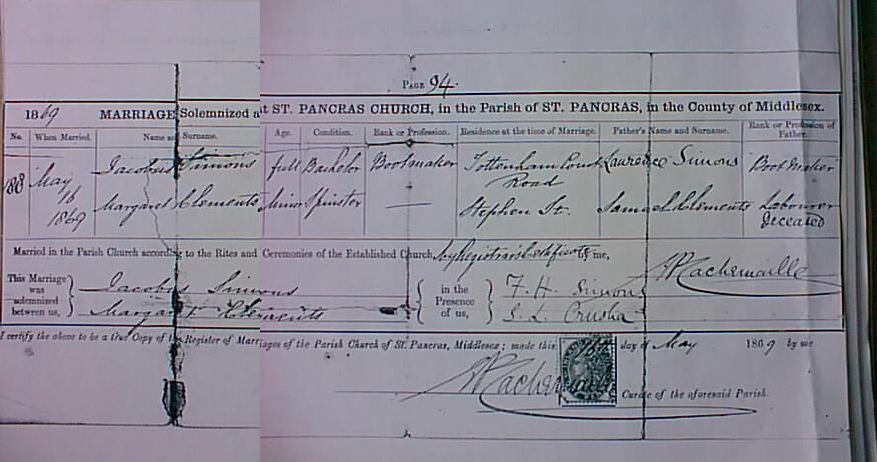 PAGE 94.
1869 MARRIAGE Solemnized at ST. PANCRAS CHURCH, in the Parish of ST. PANCRAS, in the County of Middlesex.
No. When Married. Name and Surname. Age. Condition. Rank or Profession. Residence at the time of Marriage. Father's Name and Surname. Rank or Profession of Father.
188 May 16 1869 Jacobus Simons full Bachelor Bootmaker Tottenham Court Road Laurence Simons Boot Maker
Margaret Clements Minor Spinster — Stephen St. Samuel Clements Labourer deceased
Married in the Parish Church according to the Rites and Ceremonies of the Established Church, by Registrar's Certificate by me,
This Marriage was solemnized between us, Jacobus Simons in the Presence of us, F. H. Simons
Margaret Clements S. L. Crusha
I certify the above to be a true Copy of the Register of Marriages of the Parish Church of St. Pancras, Middlesex; made this 16th day of May 1869 by me
Curate of the aforesaid Parish.